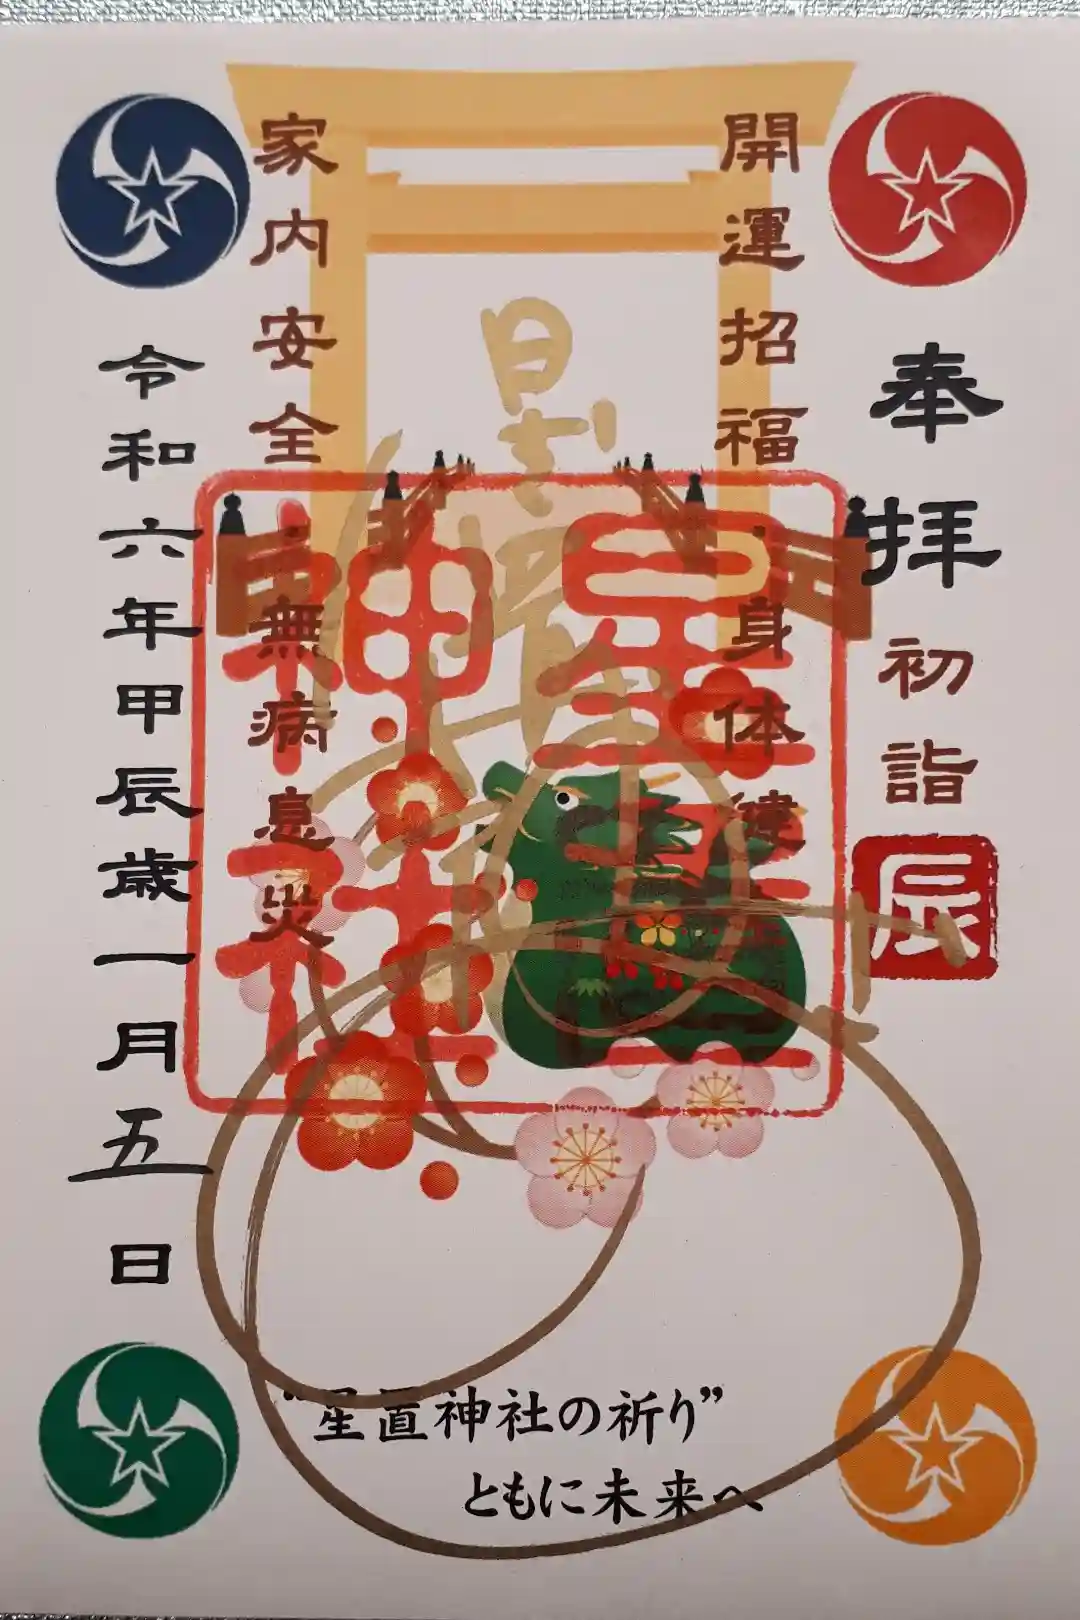 奉拝
初詣
辰
開運招福・身体健
家内安全・無病息災
星置神社
令和六年甲辰歳一月五日
“星置神社の祈り”
ともに未来へ